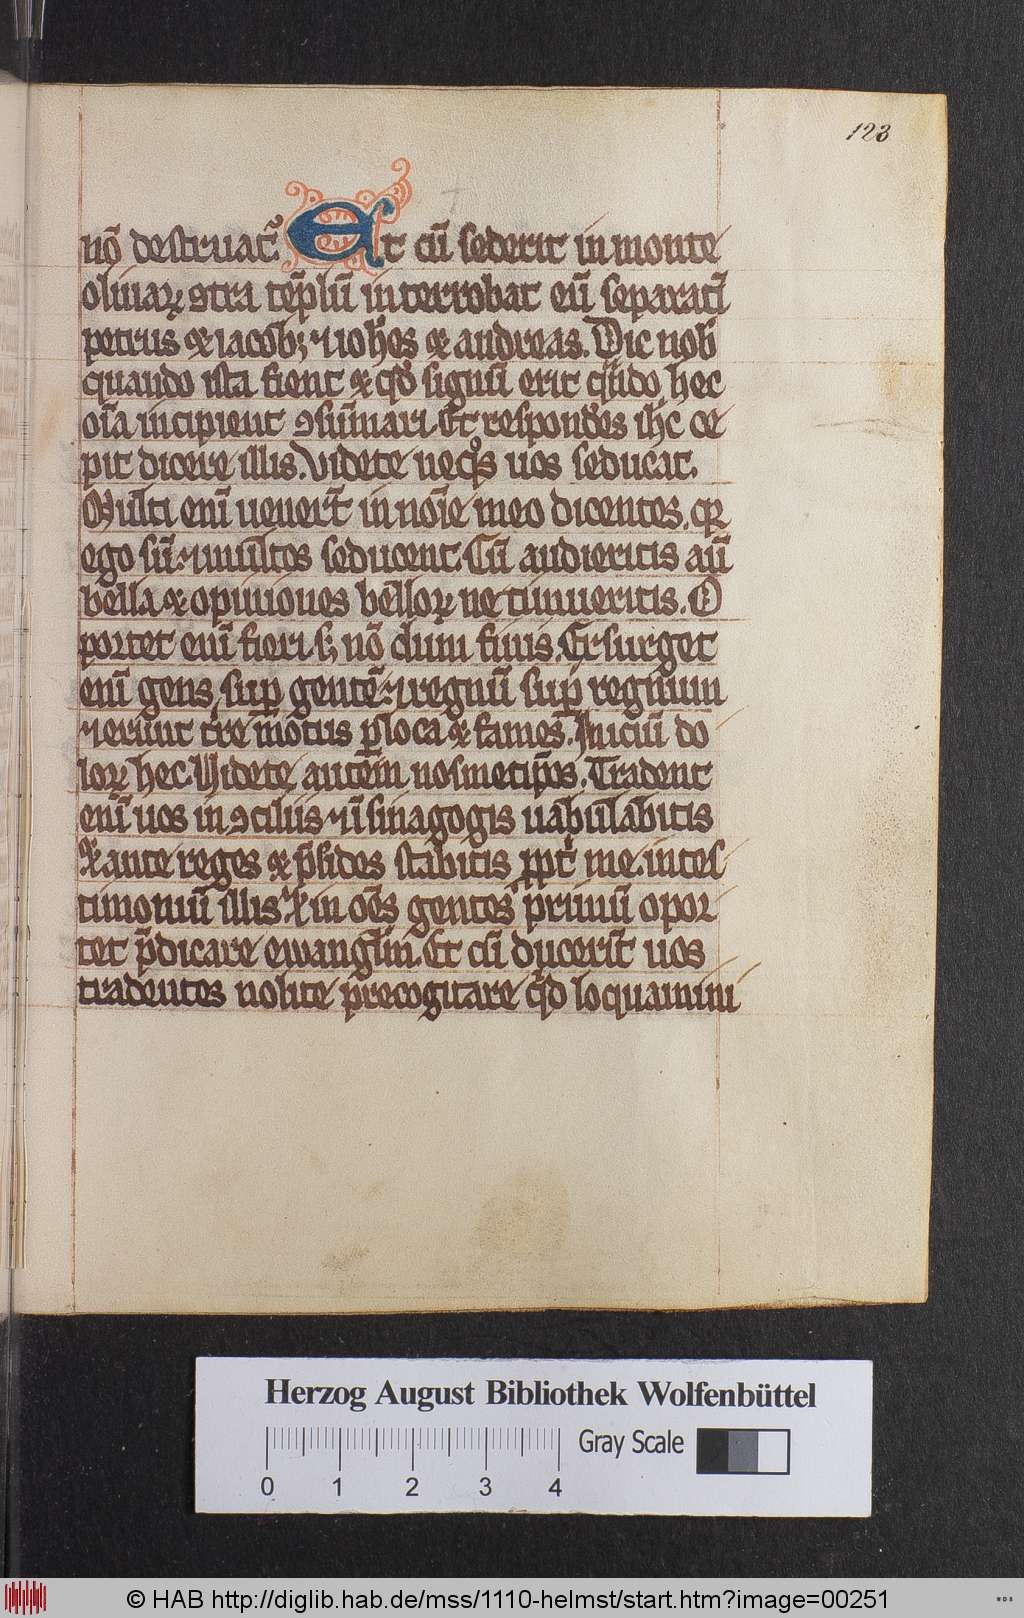 123
nō destruat᷑. Et cū sederit in monte
oliuaꝝ ꝯtra tēplū interrobat eū separati
petrus & iacob; ⁊ ioh̄es & andreas. Dic nob̄
quando ista fient & qd̄ signū erit qn̄do hec
oīa incipient ꝯsūmari. Et respondēs ih̄c ce
pit dicere illis. Videte neq̄s uos seducat.
Multi enī uenerīt in noīe meo dicentes. qꝛ
ego sū. ⁊ multos seducent. Cū audieritis aū
bella & opiniones bellorꝝ ne timueritis. O
portet enī fieri. sꝫ nō dum finis. Exsurget
enī gens sup̄ gentē. ⁊ regnū sup̄ regnum
⁊ erunt tr̄re mōtus ꝑ loca & fames. Iniciū do
loꝝ hec. Videte autem nosmetip̄os. Tradent
enī uos in ꝯciliis ⁊ ī sinagogis uabulabitis
& ante reges & p̄sides stabitis ꝓpt̄ me. in tes
timoniū illis. Et in oēs gentes primū opor
tet p̄dicare ewangl̄m. Et cū duxerīt uos
tradentes nolite precogitare qd̄ loquamini
Herzog August Bibliothek Wolfenbüttel
Gray Scale
0 1 2 3 4
© HAB http://diglib.hab.de/mss/1110-helmst/start.htm?image=00251